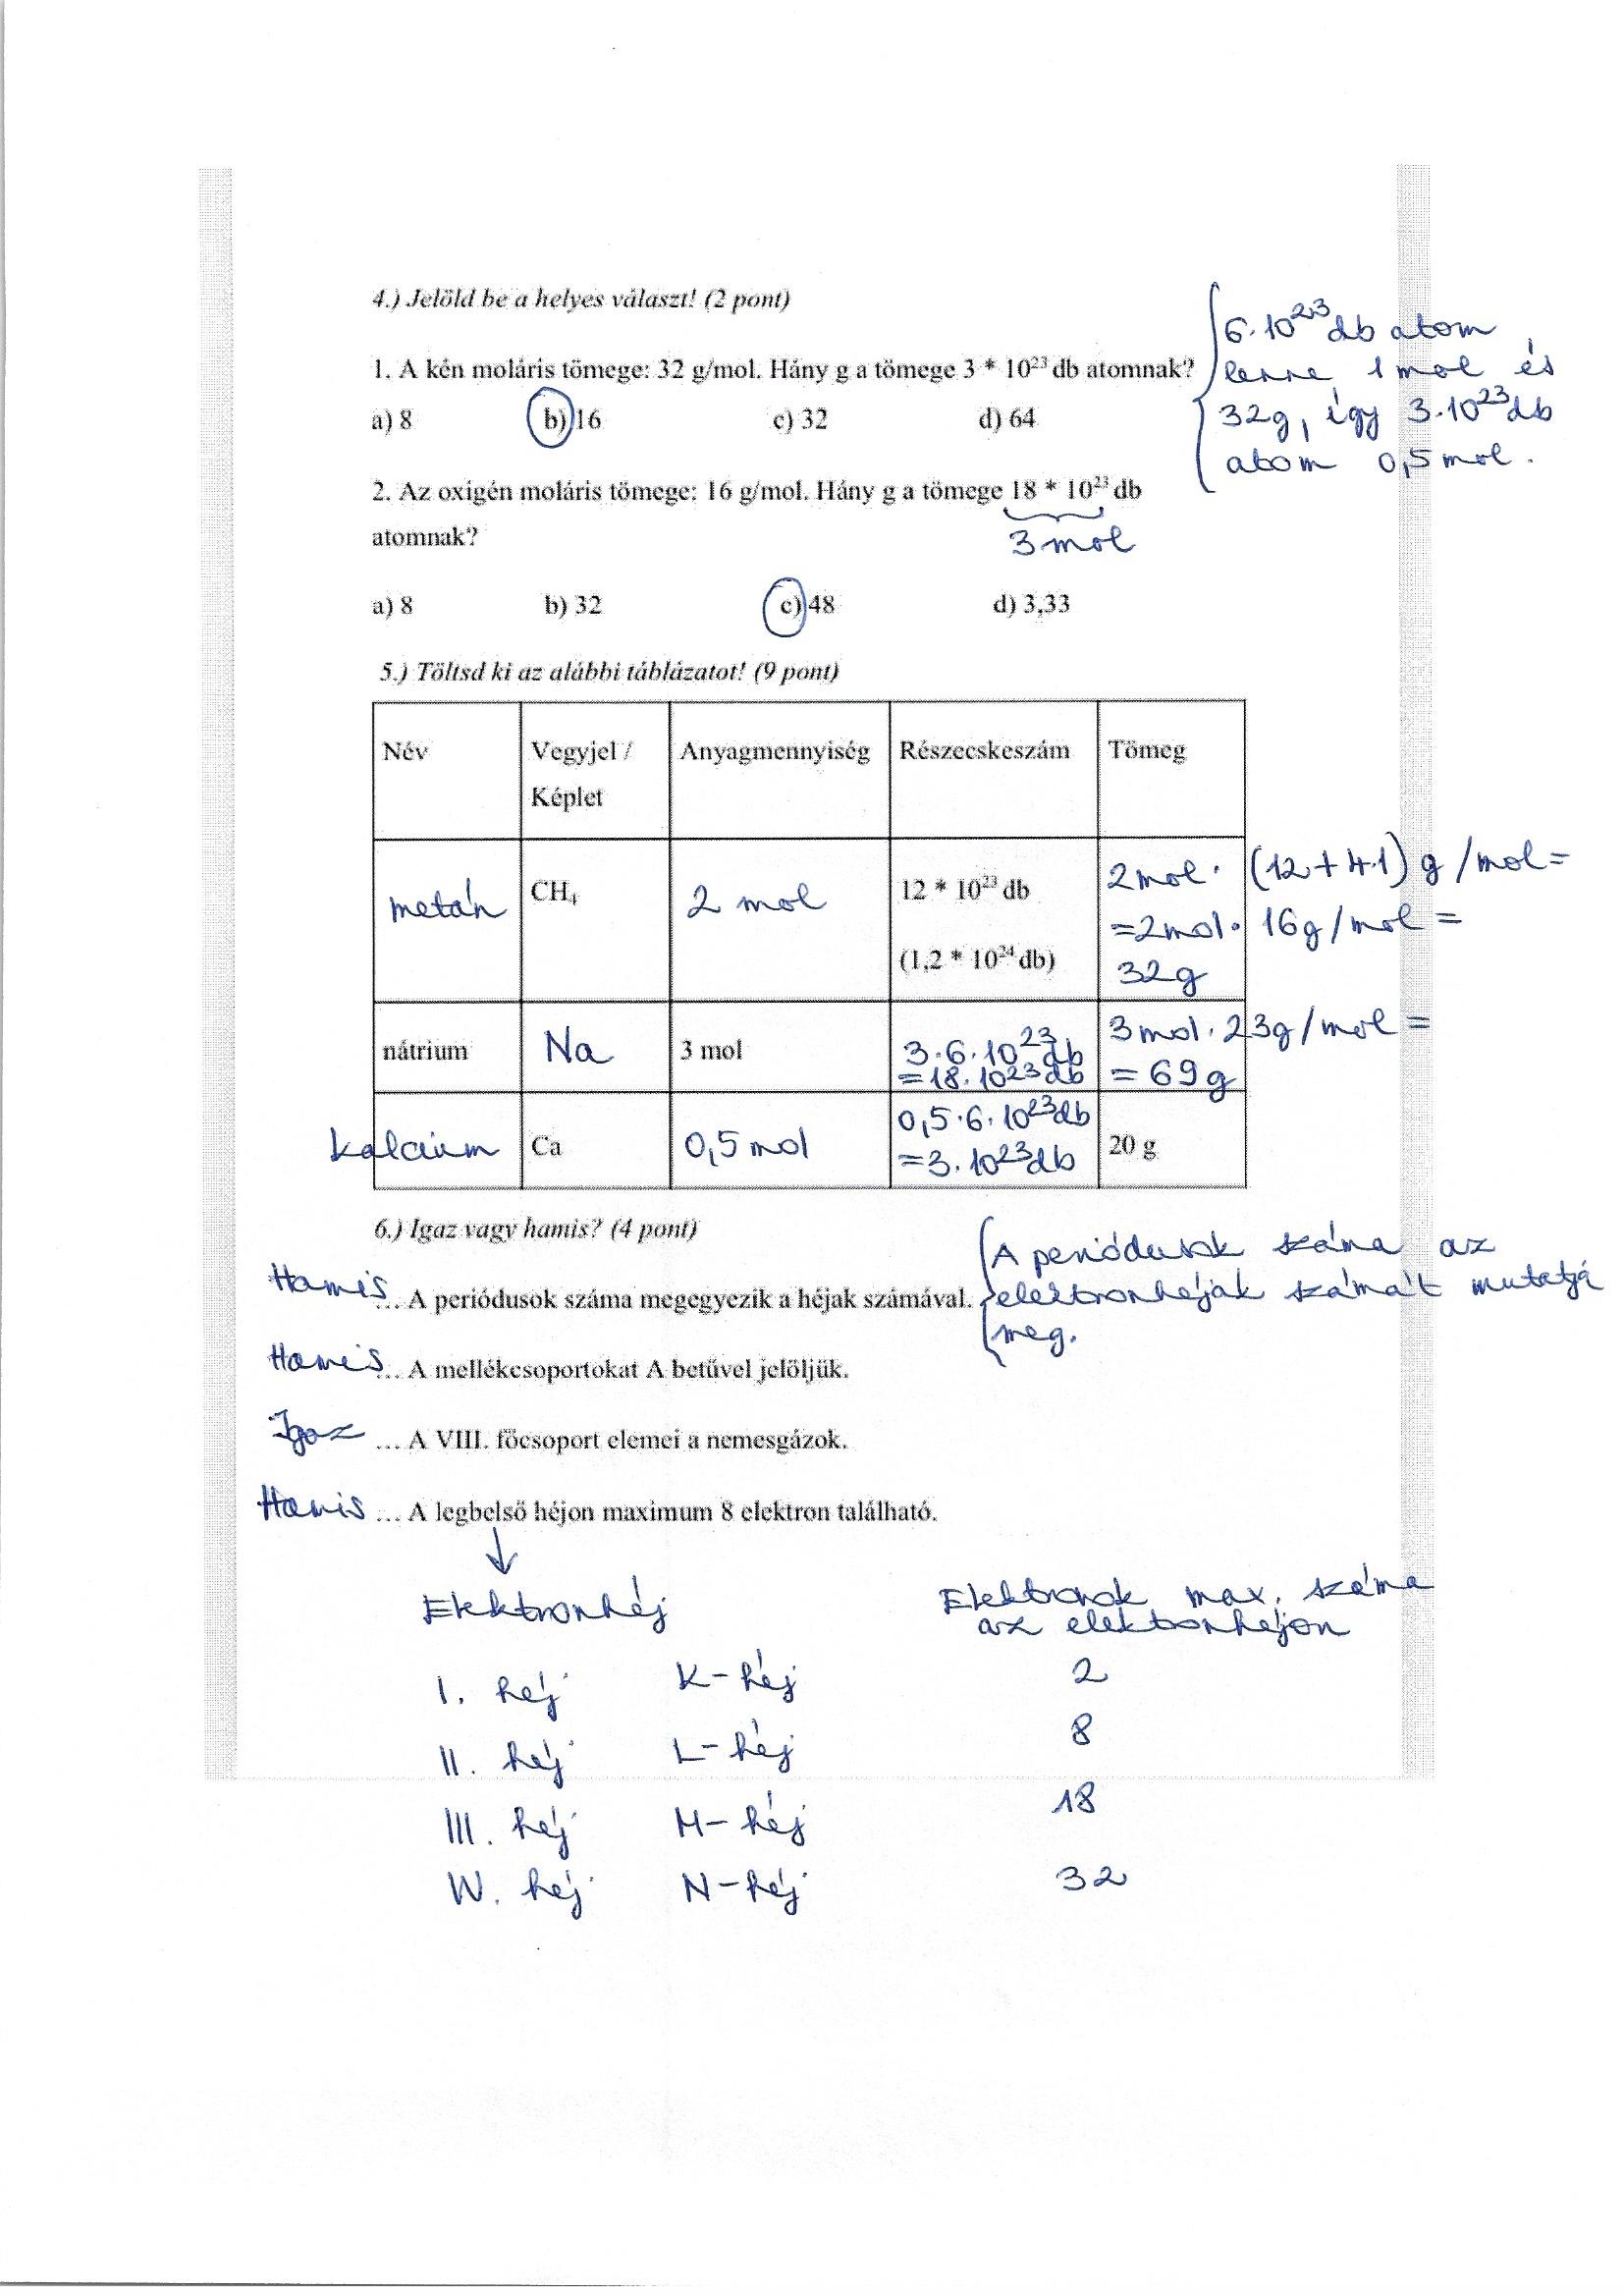 4.) Jelöld be a helyes választ! (2 pont)
1. A kén moláris tömege: 32 g/mol. Hány g a tömege 3 * 10²³ db atomnak?
a) 8 b) 16 c) 32 d) 64
6·10²³ db atom
lenne 1 mol és
32g, így 3·10²³ db
atom 0,5 mol.
2. Az oxigén moláris tömege: 16 g/mol. Hány g a tömege 18 * 10²³ db
atomnak?
3 mol
a) 8 b) 32 c) 48 d) 3,33
5.) Töltsd ki az alábbi táblázatot! (9 pont)
Név Vegyjel / Anyagmennyiség Részecskeszám Tömeg
Képlet
metán CH₄ 2 mol 12 * 10²³ db 2mol· (12+4·1) g/mol=
=2mol· 16g/mol =
(1,2 * 10²⁴ db) 32g
nátrium Na 3 mol 3·6·10²³ db 3mol·23g/mol =
=18·10²³ db = 69g
kalcium Ca 0,5 mol 0,5·6·10²³db 20 g
=3·10²³db
6.) Igaz vagy hamis? (4 pont)
Hamis ... A periódusok száma megegyezik a héjak számával.
A periódusok száma az
elektronhéjak számát mutatja
meg.
Hamis ... A mellékcsoportokat A betűvel jelöljük.
Igaz ... A VIII. főcsoport elemei a nemesgázok.
Hamis ... A legbelső héjon maximum 8 elektron található.
↓
Elektronhéj Elektronok max. száma
az elektronhéjon
I. héj K-héj 2
II. héj L-héj 8
III. héj M-héj 18
IV. héj N-héj 32